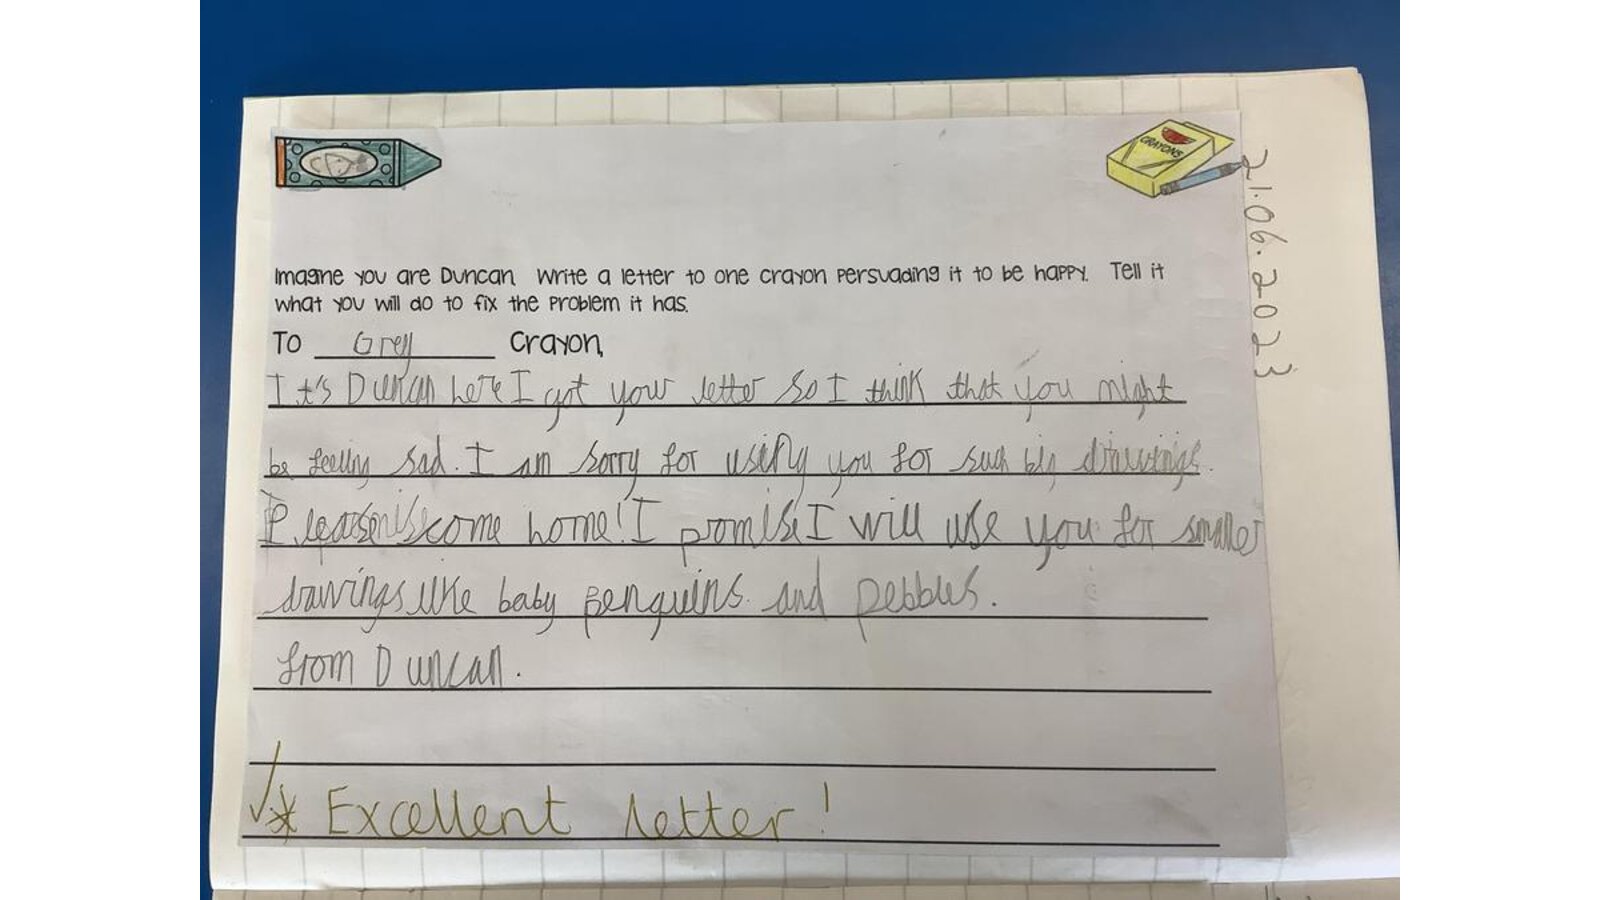 CRAYONS
21.06.2023
Imagine you are Duncan. Write a letter to one crayon persuading it to be happy. Tell it
what you will do to fix the problem it has.
To Grey Crayon,
It's Duncan here I got your letter so I think that you might
be feeling sad. I am sorry for using you for such big drawings.
Please come home! I promise I will use you for smaller
drawings like baby penguins and pebbles.
from Duncan.
* Excellent letter!